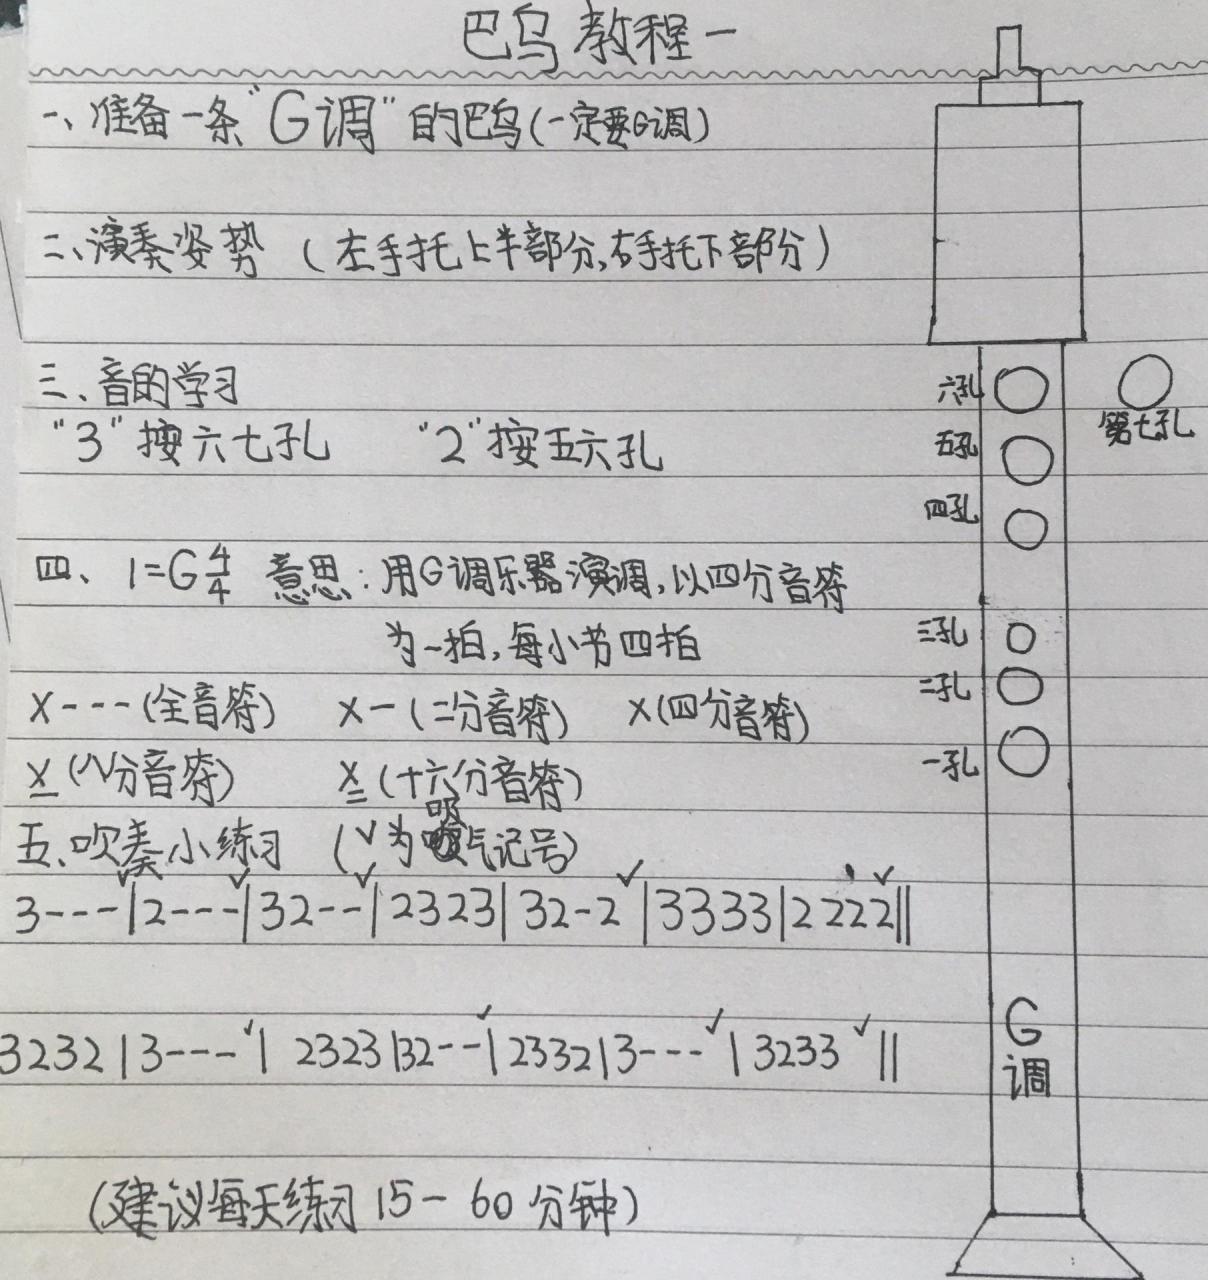 巴乌教程一
一、准备一条"G调"的巴乌(一定要G调)
二、演奏姿势 (左手托上半部分,右手托下部分)
三、音的学习
"3"按六七孔 "2"按五六孔
四、1=G 4/4 意思:用G调乐器演调,以四分音符
为一拍,每小节四拍
X---(全音符) X-(二分音符) X(四分音符)
X(八分音符) X(十六分音符)
五、吹奏小练习 (√为吸气记号)
3---√|2---√|32--√|2323|32-2√|3333|2222√||
3232|3---√|2323|32--√|2332|3---√|3233√||
(建议每天练习15-60分钟)
六孔
第七孔
五孔
四孔
三孔
二孔
一孔
G
调